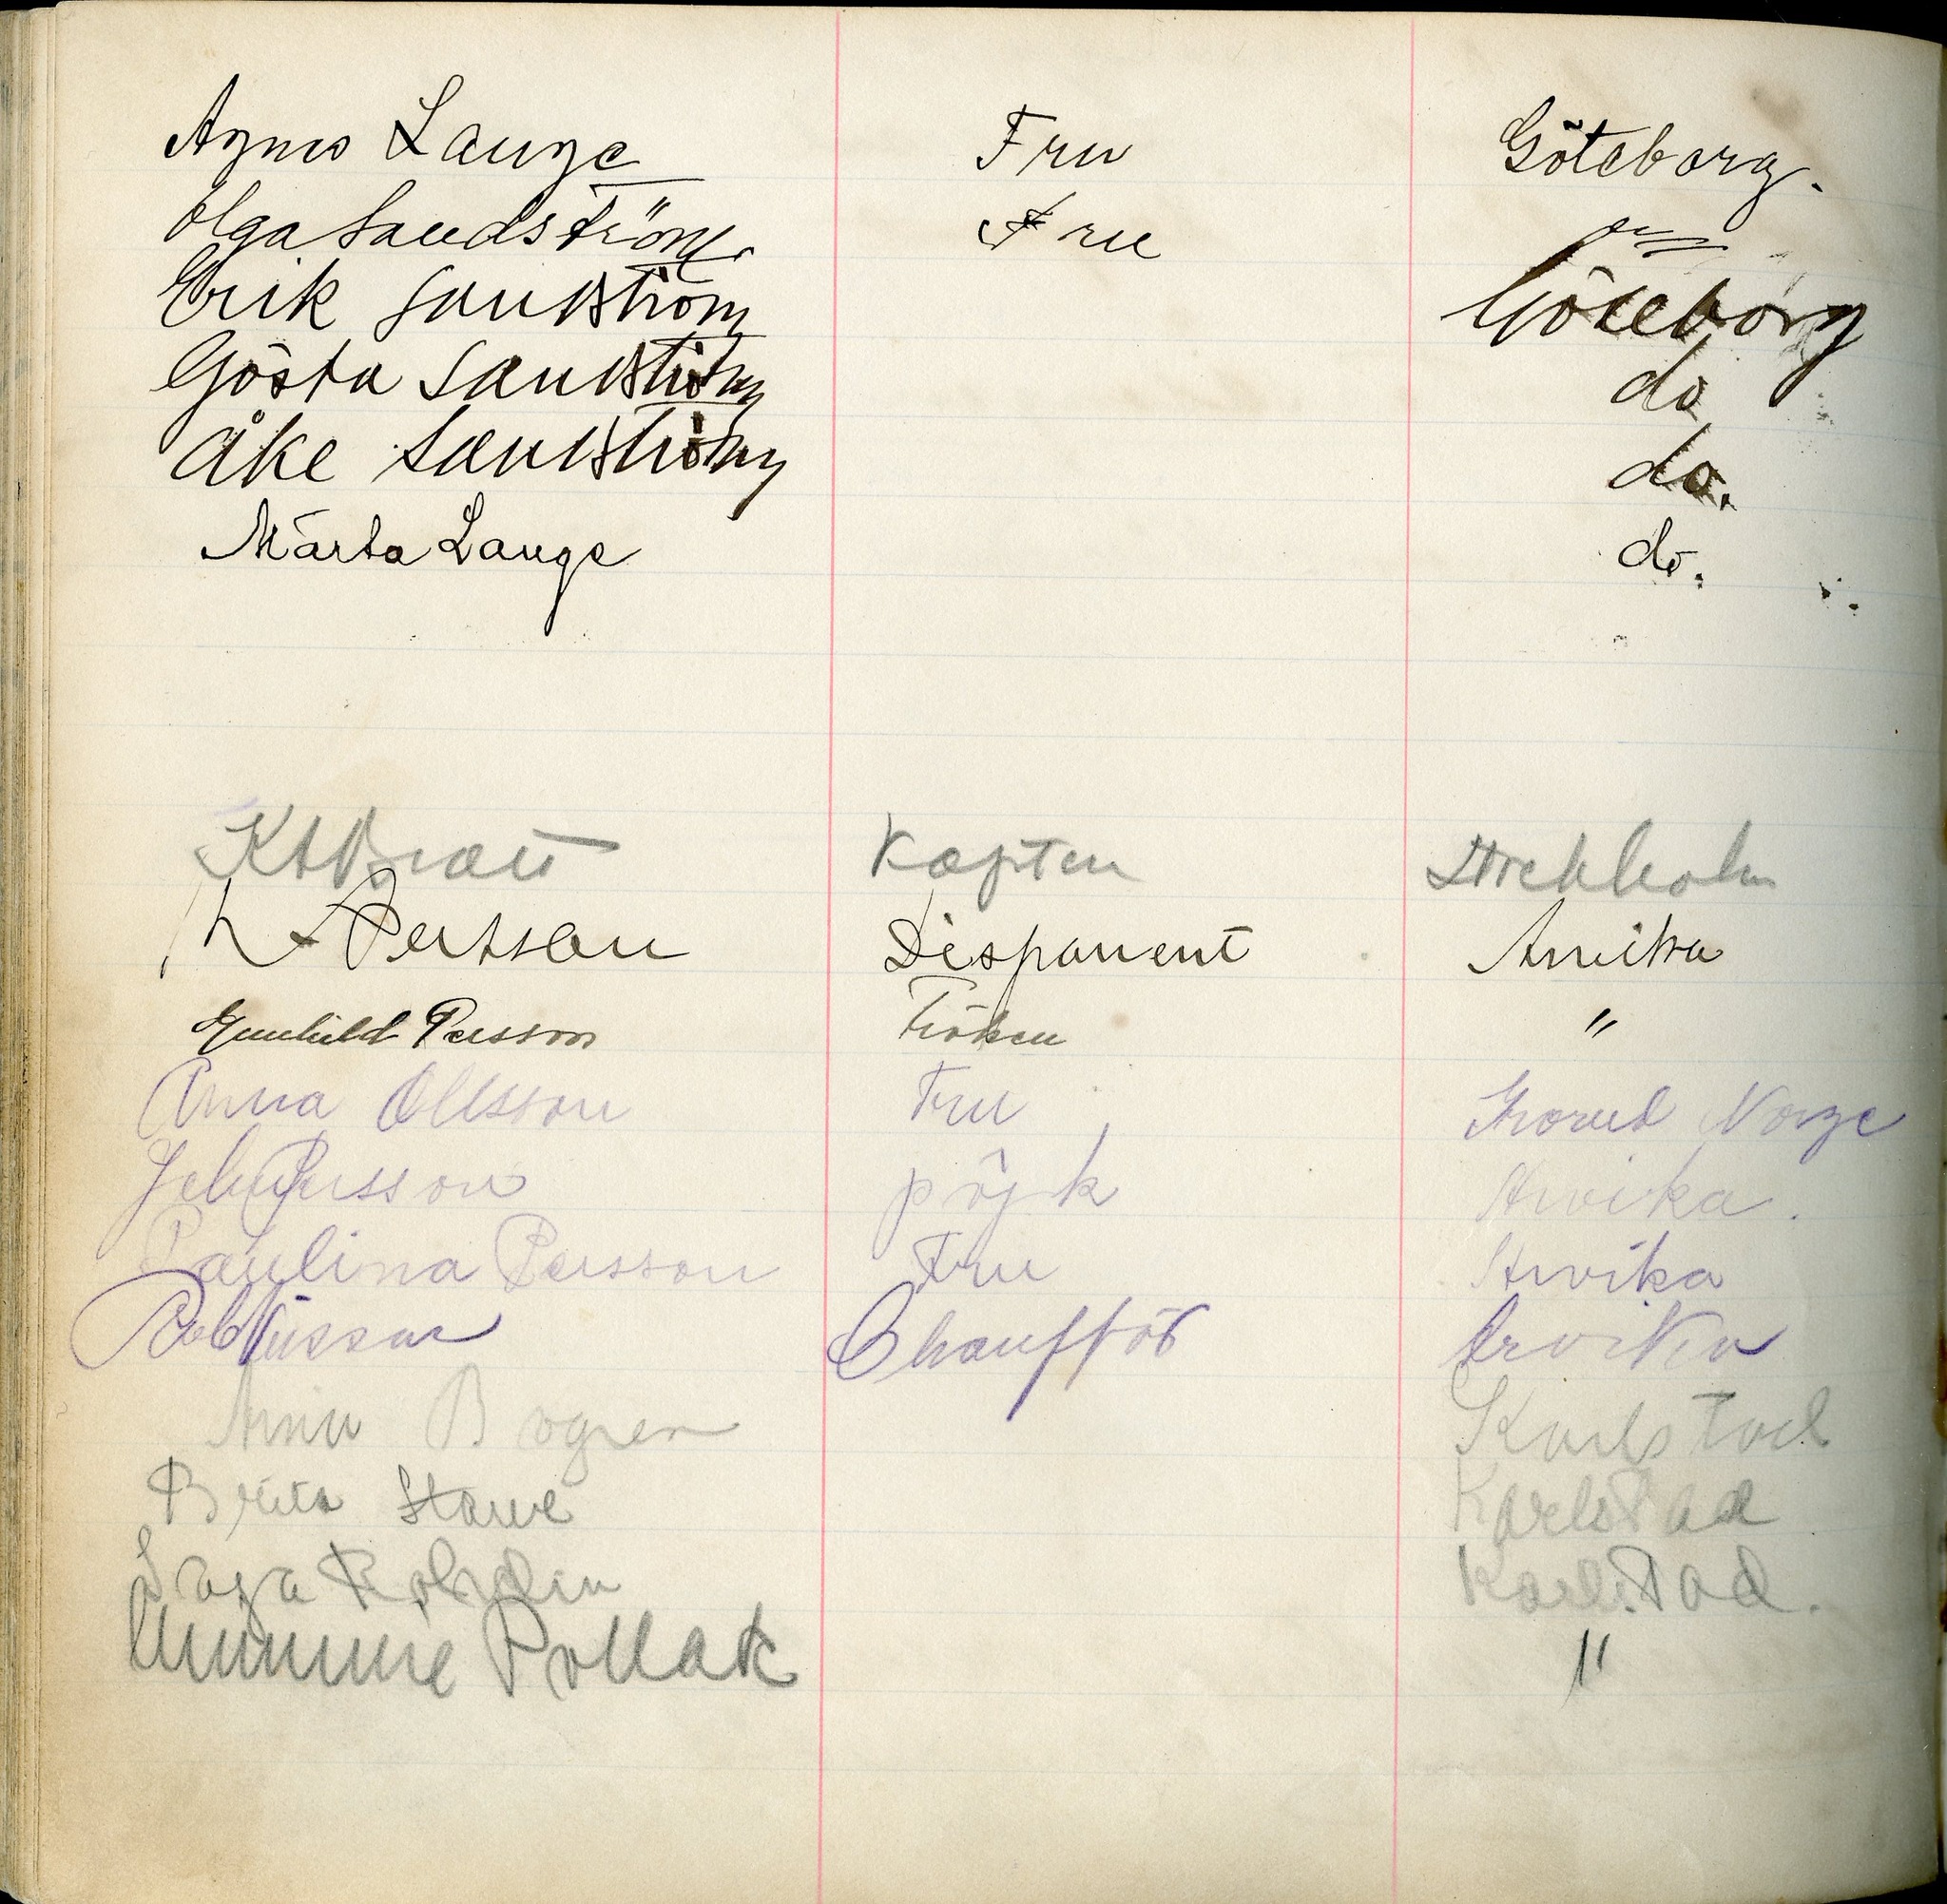 Agnes Lange Fru Göteborg.
Olga Sandström. Fru
Erik Sandström Göteborg
Gösta Sandström do
Åke Sandström do.
Märta Lange do.
K A Bratt Kapten Stockholm
Persson Disponent Arvika
Gunhild Persson Fröken "
Anna Ollsson Fru Norge
John Persson pöjk Arvika.
Paulina Persson Fru Arvika
Chaufför Arvika
Anna Bogren Karlstad
Brita Stawe Karlstad
Saga Karlstad.
Mimmie Pollak "